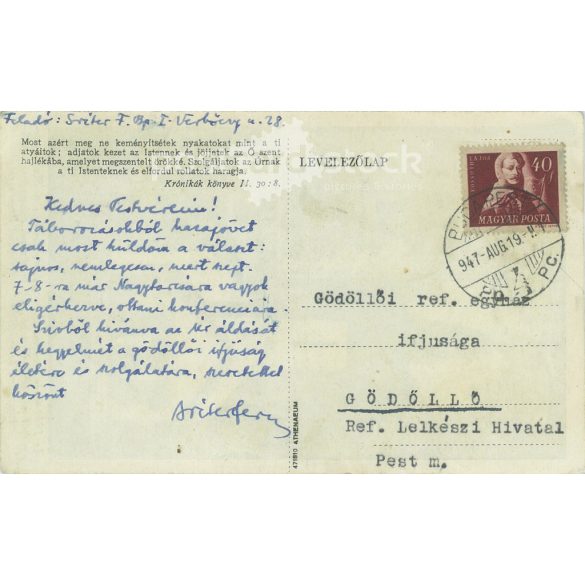 Feladó: Sziter F. Bp. I. Verbőczy u. 28.
Most azért meg ne keményítsétek nyakatokat mint a ti
atyáitok; adjatok kezet az Istennek és jöjjetek az Ő szent
hajlékába, amelyet megszentelt örökké. Szolgáljatok az Úrnak
a ti Istenteknek és elfordul rólatok haragja.
Krónikák könyve II. 30 : 8.
Kedves Testvéreim!
Táborozásokból hazajövet
csak most küldöm a választ:
sajnos, nemlegesen, mert szept.
7-8-ra már Nagytarcsára vagyok
elígérkezve, ottani konferenciára.
Szívből kívánva az Úr áldását
és kegyelmét a gödöllői ifjúság
életére és szolgálatára, szeretettel
köszönt
LEVELEZŐLAP
40
MAGYAR POSTA
BUDAPEST
947-AUG.19.
Gödöllői ref. egyház
ifjusága
GÖDÖLLŐ
Ref. Lelkészi Hivatal
Pest m.
471810 ATHENAEUM